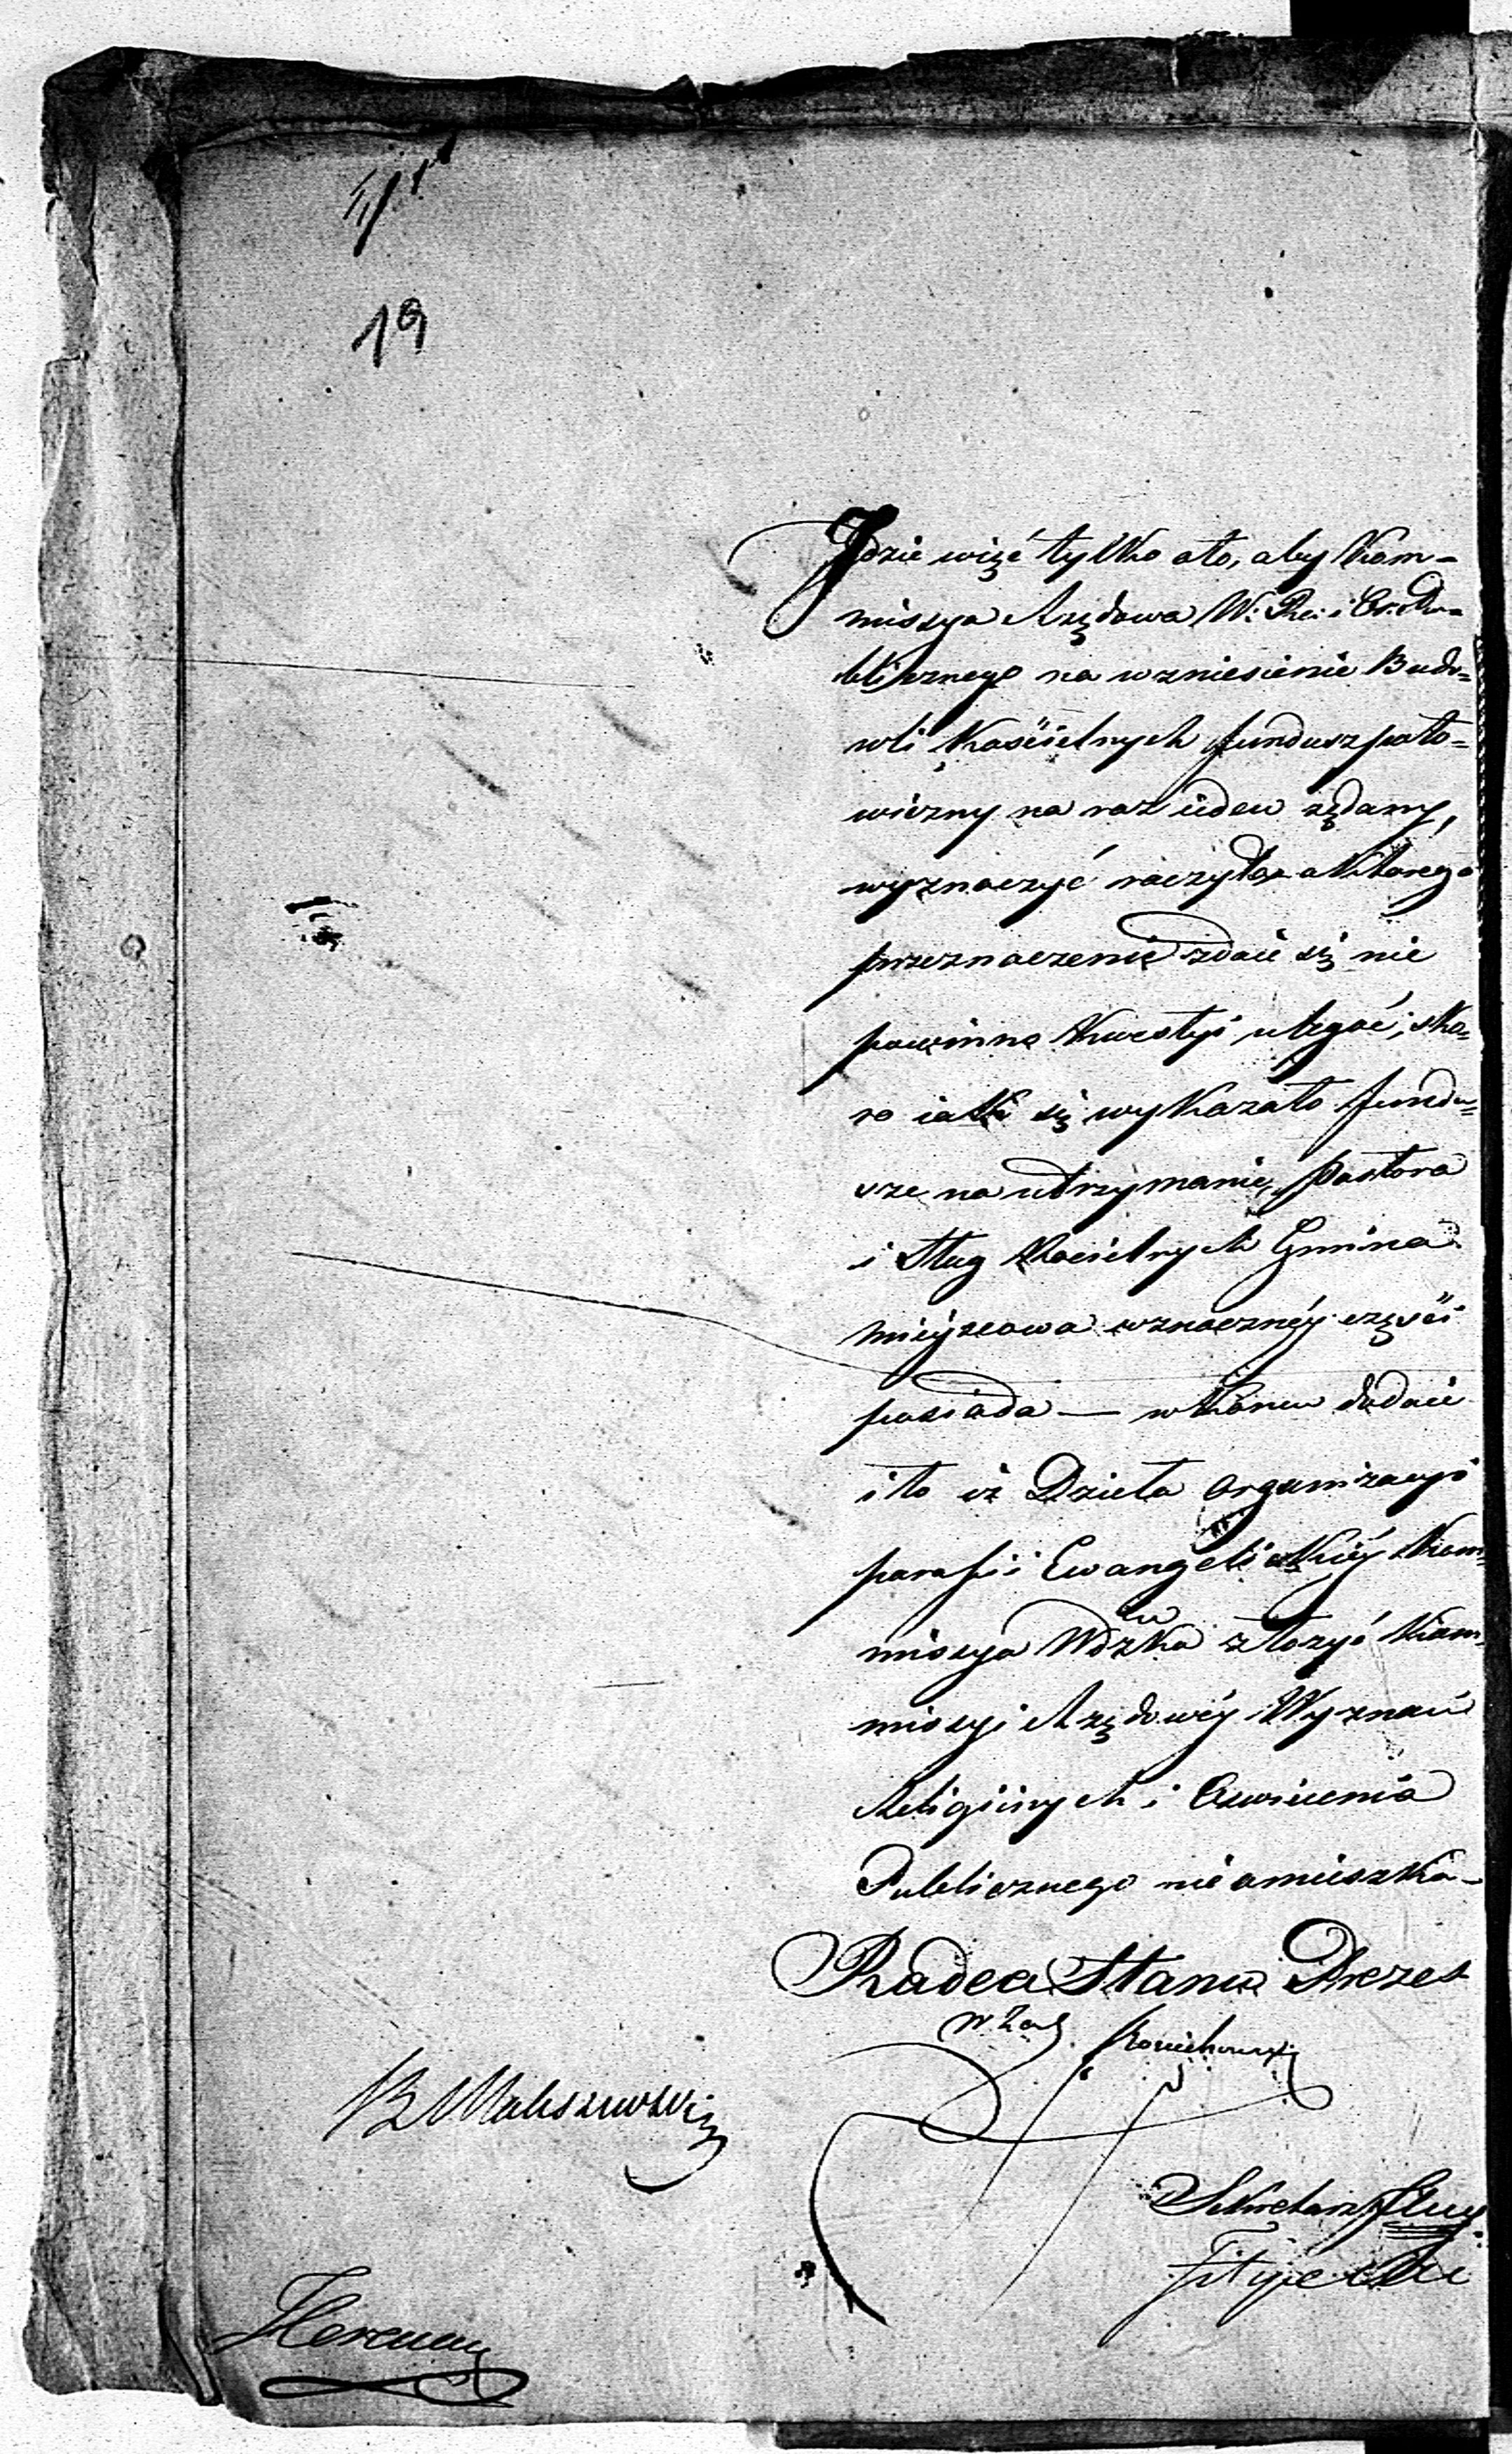 19
Jdzie więc tylko oto, aby Kom-
missya Rządowa W: Re: i Oś: Pu-
blicznego na wzniesienie Budo-
wli Kościelnych fundusz poło-
wiczny na raz ieden żądany,
wyznaczyć raczyła, a którego
przeznaczenie zdaie się nie
powinno kwestyi ulegać, sko-
ro iak się wykazało fundu-
sze na utrzymanie, Pastora
i Sług Kościelnych Gmina
mieyscowa w znacznéy części
posiada — w końcu dodaie
i to iż Dzieła organizacyi
parafii Ewangelickiéy Kom-
missya Wdzka złożyć Kom-
missyi Rządowéy Wyznań
Religiinych i Oświecenia
Publicznego nieomieszka -
Radca Stanu Prezes
w Zas.
B Maliszewski
Sekretarz
Filipecki